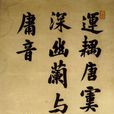 運耦唐虞
深幽蘭与
庸音